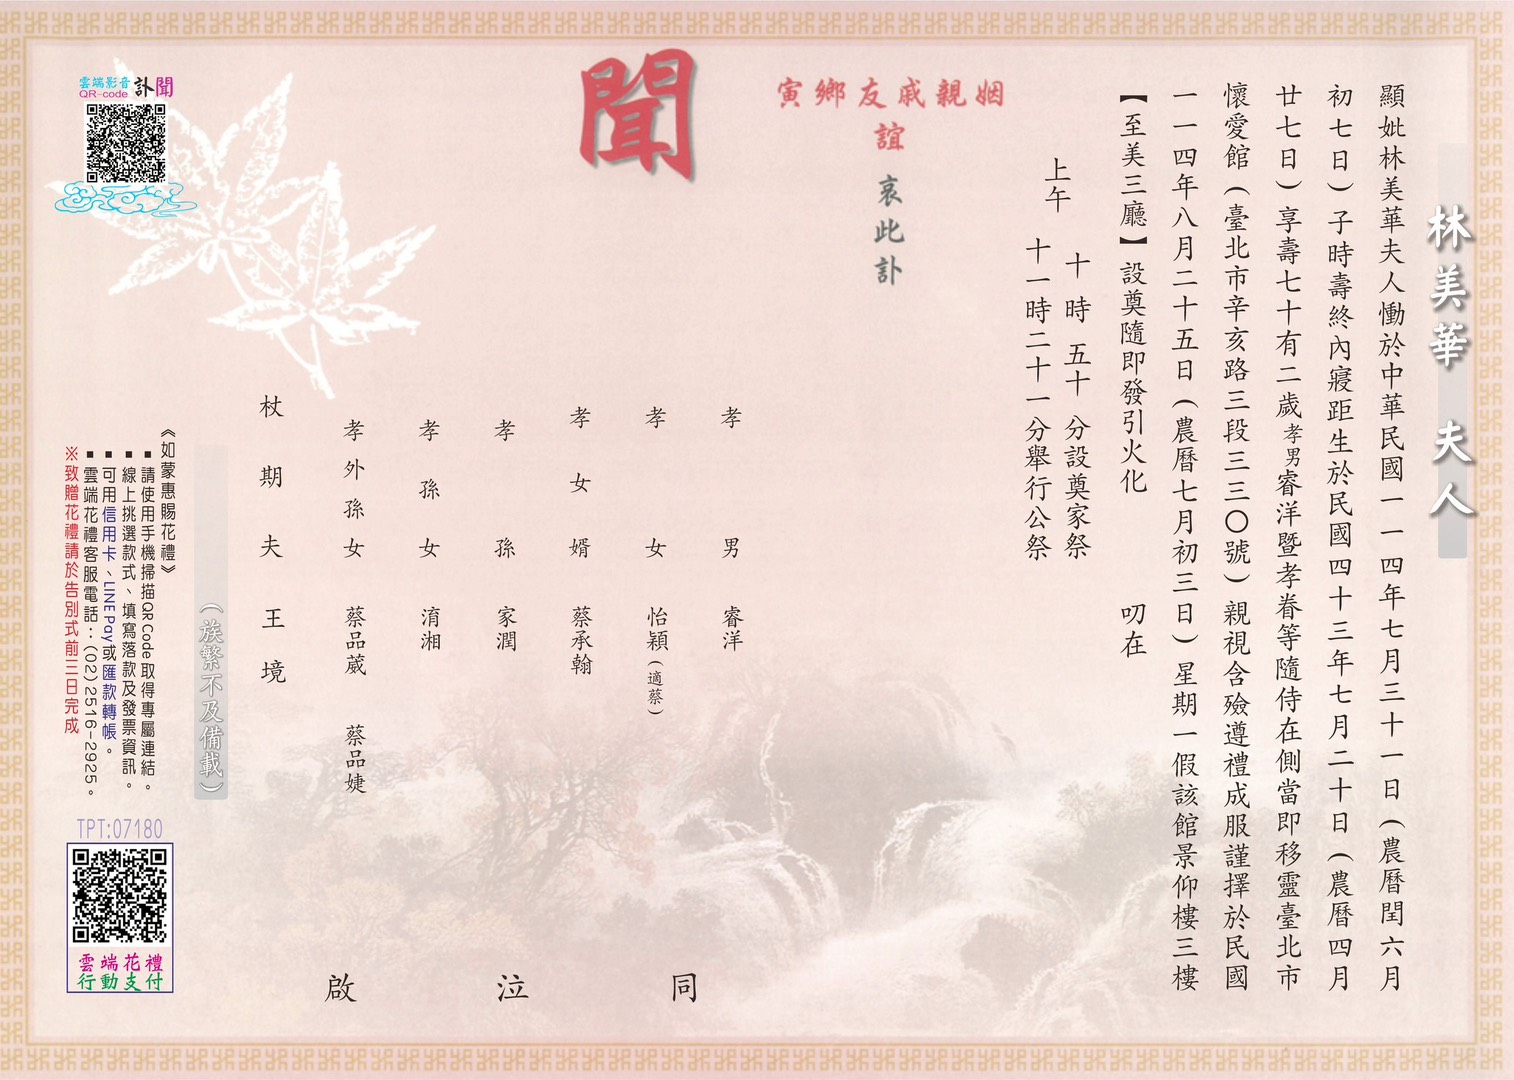 林美華 夫人
顯妣林美華夫人慟於中華民國一一四年七月三十一日(農曆閏六月
初七日)子時壽終內寢距生於民國四十三年七月二十日(農曆四月
廿七日)享壽七十有二歲孝男睿洋暨孝眷等隨侍在側當即移靈臺北市
懷愛館(臺北市辛亥路三段三三〇號)親視含殮遵禮成服謹擇於民國
一一四年八月二十五日(農曆七月初三日)星期一假該館景仰樓三樓
【至美三廳】設奠隨即發引火化 叨在
上午 十時 五十 分設奠家祭
十一時二十一分舉行公祭
寅鄉友戚親姻
誼
哀此訃
聞
孝男 睿洋
孝女 怡穎(適蔡)
孝女婿 蔡承翰
孝孫 家潤
孝孫女 淯湘
孝外孫女 蔡品葳 蔡品婕
杖期夫 王境
同泣啟
(族繁不及備載)
雲端影音 訃聞
QR-code
《如蒙惠賜花禮》
▪請使用手機掃描QR Code 取得專屬連結。
▪線上挑選款式、填寫落款及發票資訊。
▪可用信用卡、LINE Pay或匯款轉帳。
▪雲端花禮客服電話：(02) 2516-2925。
※致贈花禮請於告別式前三日完成
TPT:07180
雲端花禮
行動支付